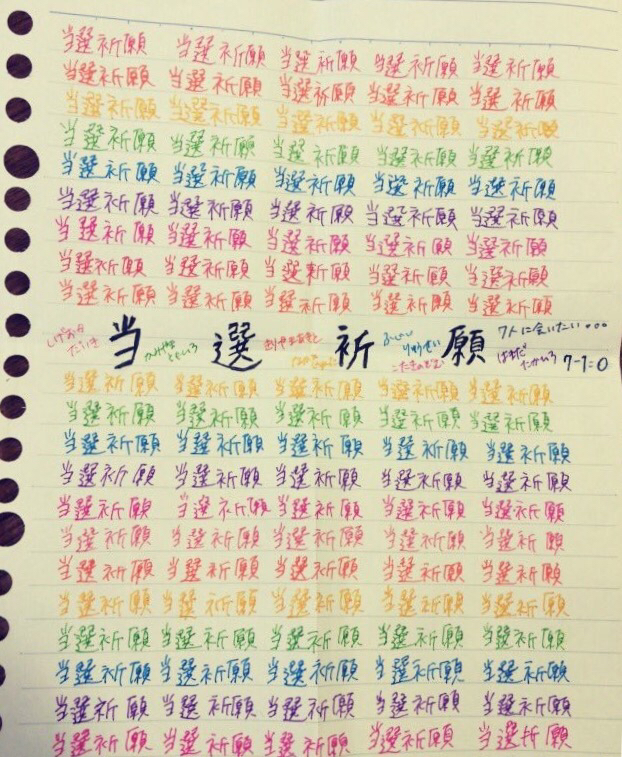 当選祈願 当選祈願 当選祈願 当選祈願 当選祈願
当選祈願 当選祈願 当選祈願 当選祈願 当選祈願
当選祈願 当選祈願 当選祈願 当選祈願 当選祈願
当選祈願 当選祈願 当選祈願 当選祈願 当選祈願
当選祈願 当選祈願 当選祈願 当選祈願 当選祈願
当選祈願 当選祈願 当選祈願 当選祈願 当選祈願
当選祈願 当選祈願 当選祈願 当選祈願 当選祈願
当選祈願 当選祈願 当選祈願 当選祈願 当選祈願
当選祈願 当選祈願 当選祈願 当選祈願 当選祈願
当選祈願
しげおか
だいき
かみやま
ともひろ
りゅうせい
こたきのぞむ
7人に会いたい...
はまだ
たかひろ
7-1=0
当選祈願 当選祈願 当選祈願 当選祈願 当選祈願
当選祈願 当選祈願 当選祈願 当選祈願 当選祈願
当選祈願 当選祈願 当選祈願 当選祈願 当選祈願
当選祈願 当選祈願 当選祈願 当選祈願 当選祈願
当選祈願 当選祈願 当選祈願 当選祈願 当選祈願
当選祈願 当選祈願 当選祈願 当選祈願 当選祈願
当選祈願 当選祈願 当選祈願 当選祈願 当選祈願
当選祈願 当選祈願 当選祈願 当選祈願 当選祈願
当選祈願 当選祈願 当選祈願 当選祈願 当選祈願
当選祈願 当選祈願 当選祈願 当選祈願 当選祈願
当選祈願 当選祈願 当選祈願 当選祈願 当選祈願
当選祈願 当選祈願 当選祈願 当選祈願 当選祈願